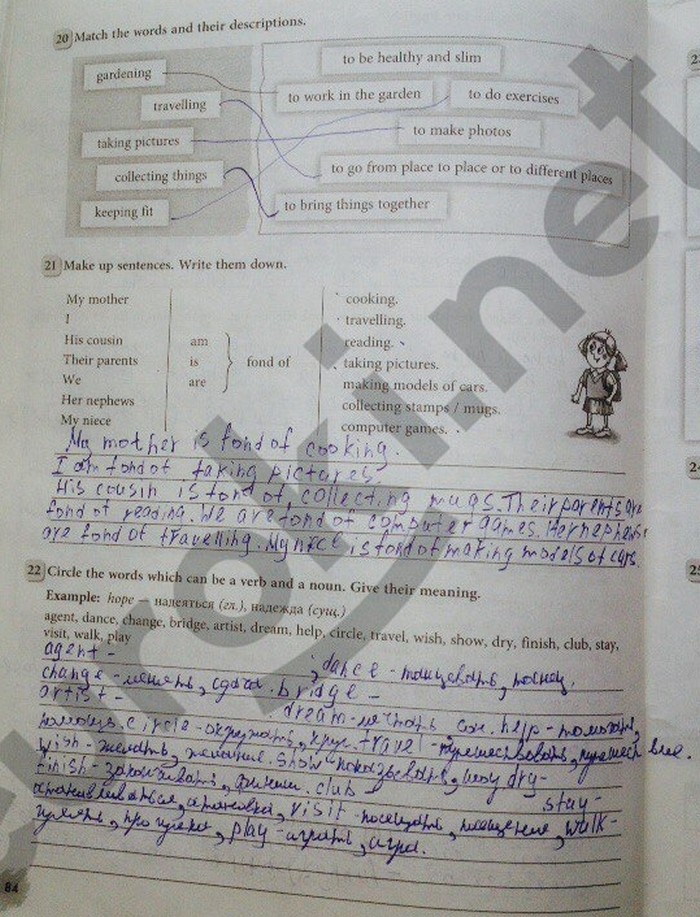 20 Match the words and their descriptions.
to be healthy and slim
gardening
to work in the garden
to do exercises
travelling
to make photos
taking pictures
to go from place to place or to different places
collecting things
to bring things together
keeping fit
21 Make up sentences. Write them down.
My mother
cooking.
I
travelling.
His cousin
am
reading.
Their parents
is
fond of
taking pictures.
We
are
making models of cars.
Her nephews
collecting stamps / mugs.
My niece
computer games.
My mother is fond of cooking.
I am fond of taking pictures.
His cousin is fond of collecting mugs. Their parents are
fond of reading. We are fond of computer games. Her nephews
are fond of travelling. My niece is fond of making models of cars.
22 Circle the words which can be a verb and a noun. Give their meaning.
Example: hope — надеяться (гл.), надежда (сущ.)
agent, dance, change, bridge, artist, dream, help, circle, travel, wish, show, dry, finish, club, stay,
visit, walk, play
agent - ; dance - танцевать, танец.
change - менять, сдача. bridge -
artist - . dream - мечтать сон. help - помогать,
помощь. circle - окружать, круг. travel - путешествовать, путешествие.
wish - желать, желание. show - показывать, шоу dry -
finish - заканчивать, финиш. club stay -
останавливаться, остановка, visit - посещать, посещение, walk -
гулять, прогулка, play - играть, игра.
84
euroki.net